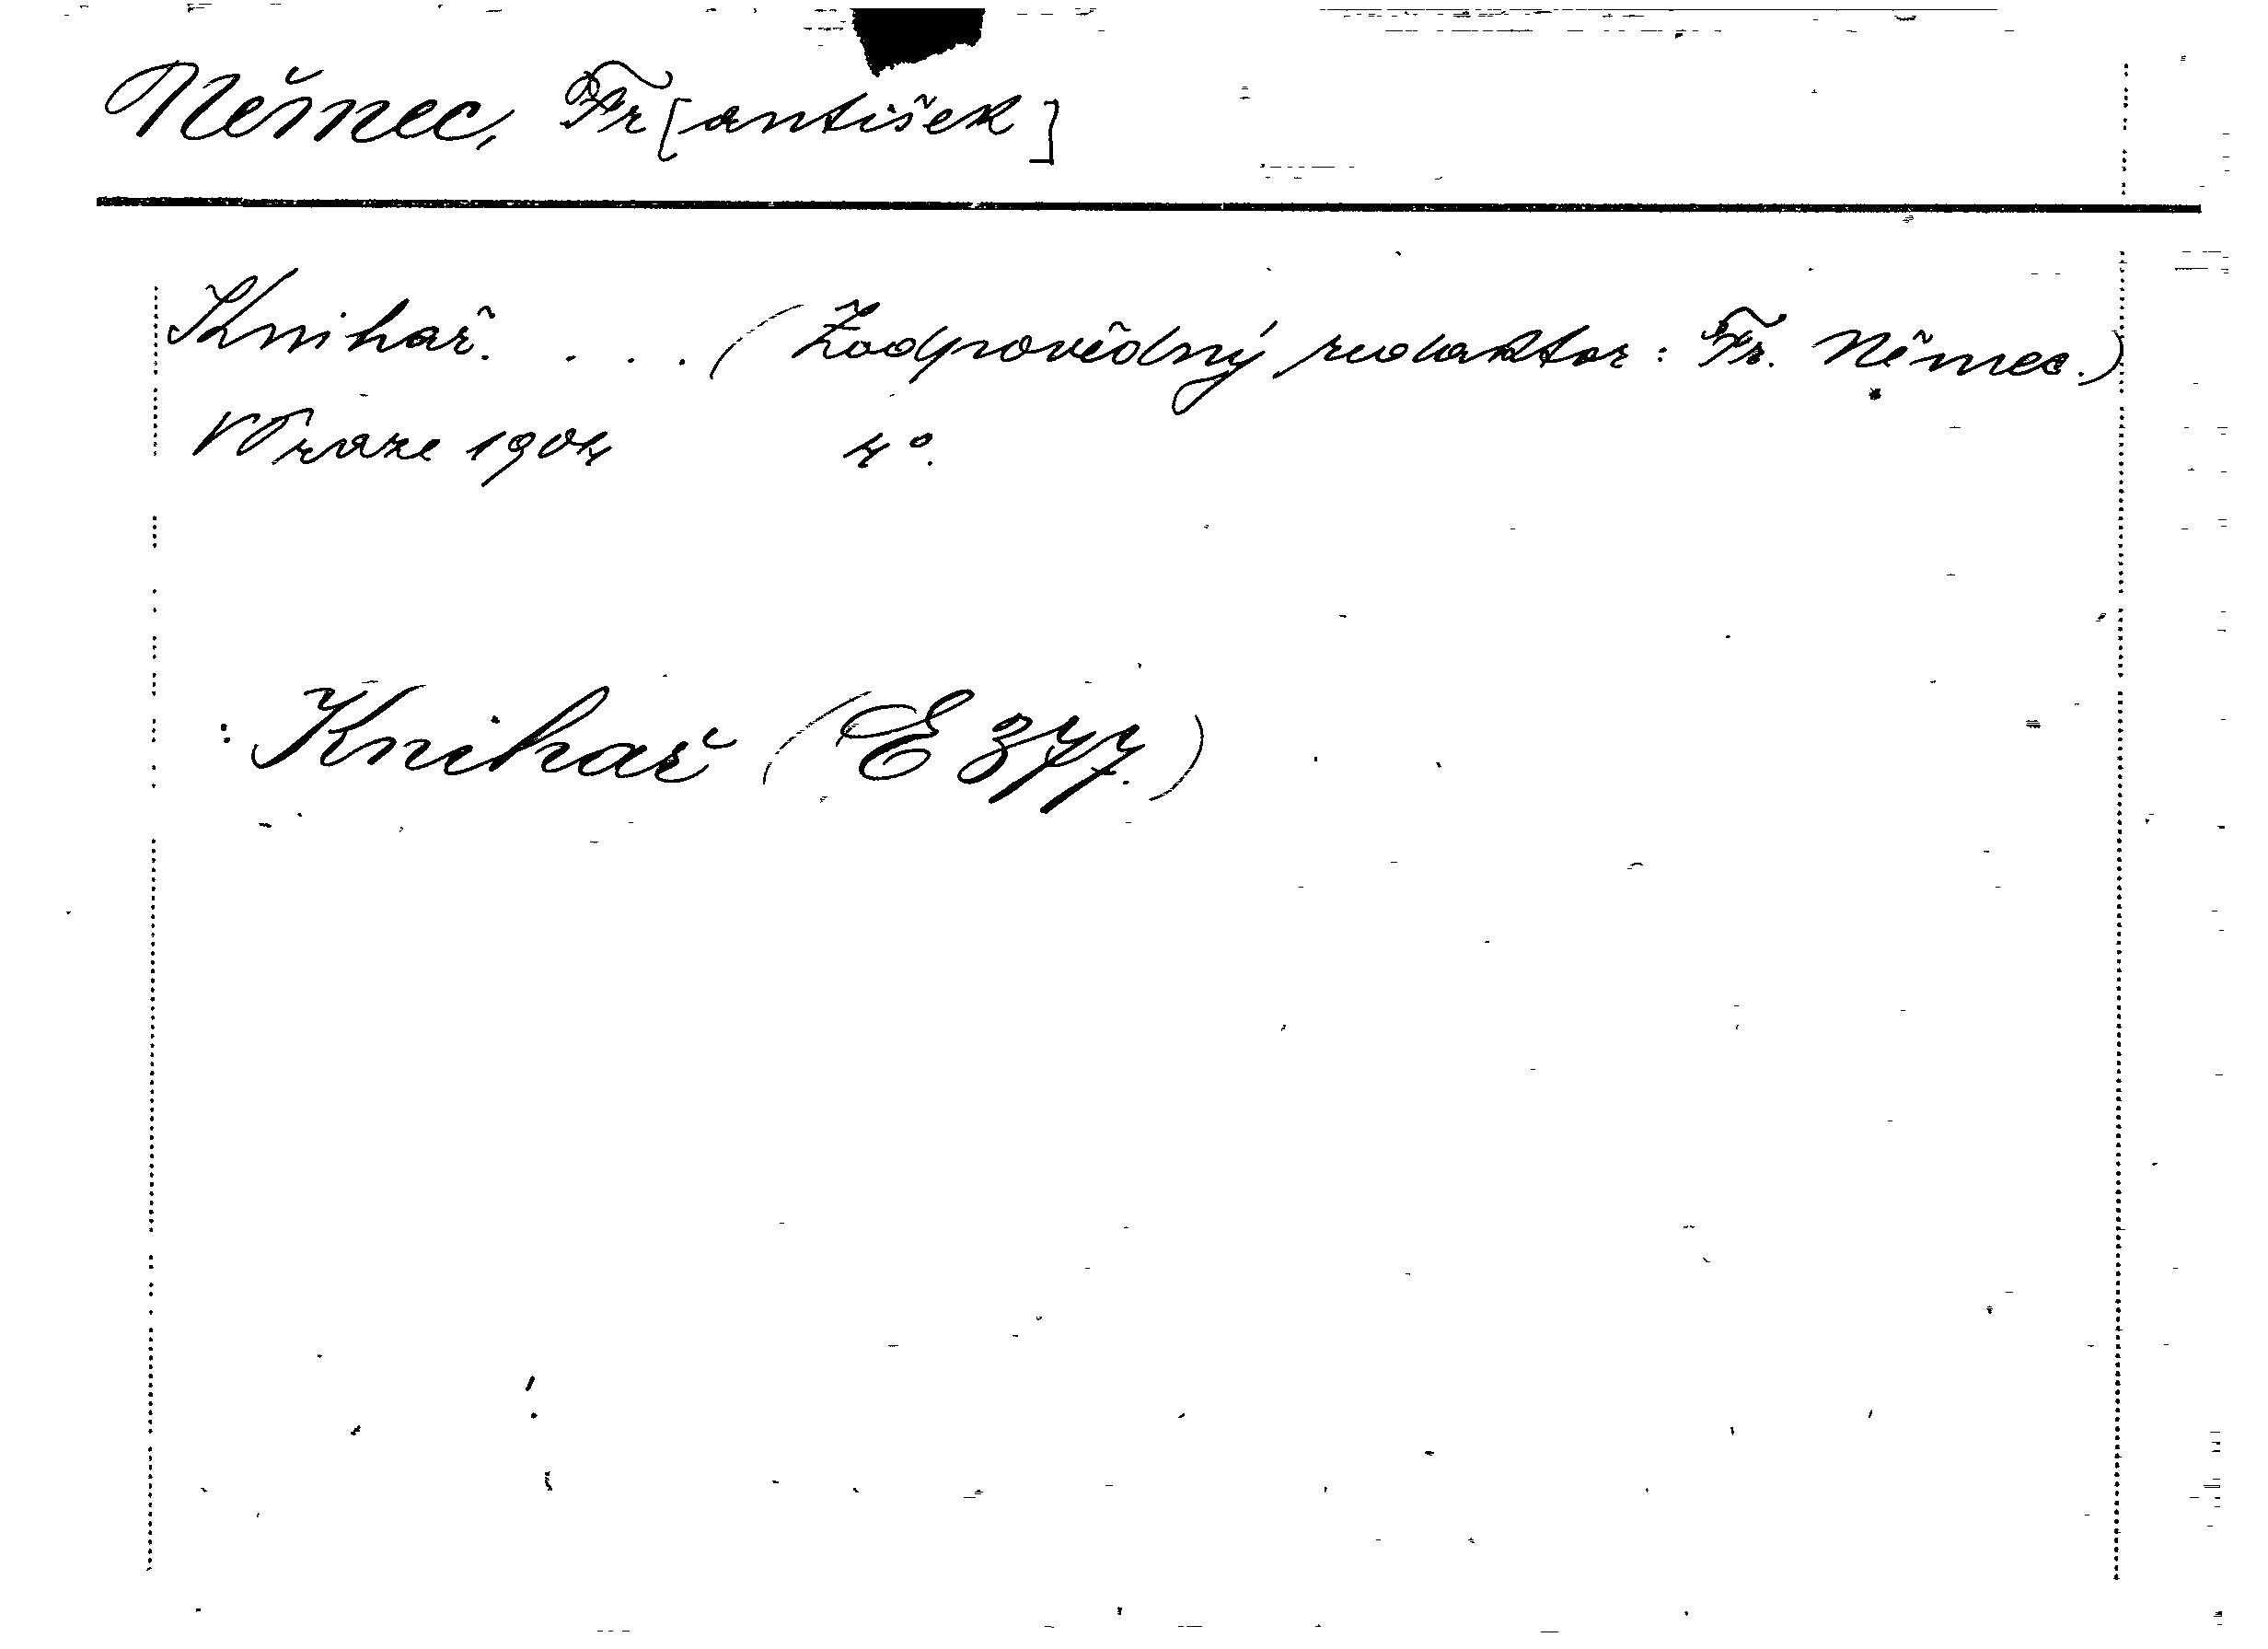 Němec, Fr[antišek]
Knihař. . . . (Zodpovědný redaktor: Fr. Němec.)
V Praze 1904 4°.
: Knihař (E 377.)